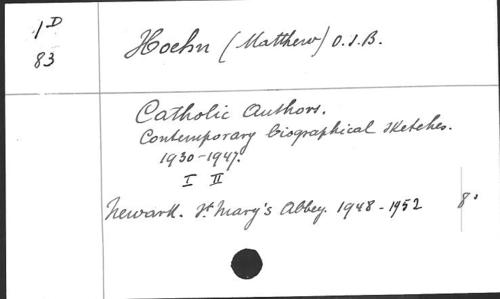 1D
83
Hoehn (Matthew) O.S.B.
Catholic Authors.
Contemporary biographical sketches.
1930-1947.
I II
Newark. St Mary's Abbey. 1948-1952 8°